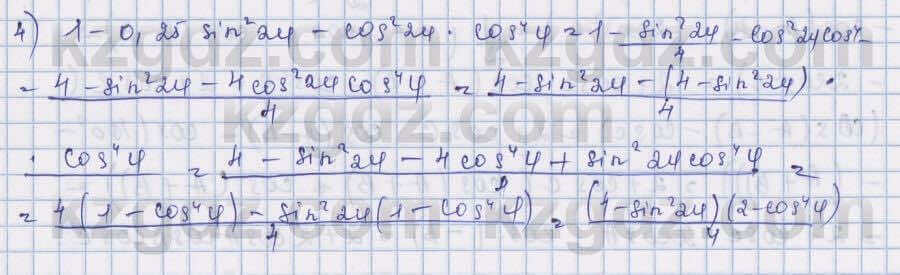 4) 1 - 0,25 sin²2y - cos²2y · cos⁴y = 1 - sin²2y/4 - cos²2y cos⁴ -
= (4 - sin²2y - 4cos²2y cos⁴y)/4 = (4 - sin²2y - (4 - sin²2y) ·)/4
· cos⁴y = 4 - sin²2y - 4cos⁴y + sin²2y cos⁴y =
= (4(1 - cos⁴y) - sin²2y(1 - cos⁴y))/4 = ((1-sin²2y)(2-cos⁴y))/4
kzgdz.com kzgdz.com
kzgdz.com kzgdz.com